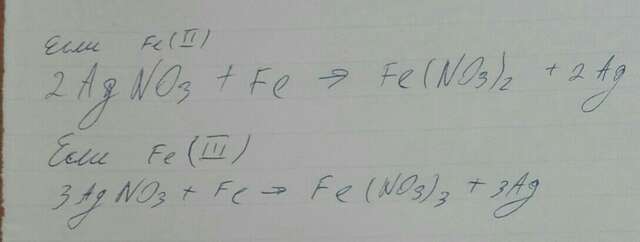 Если Fe(II)
2AgNO₃ + Fe → Fe(NO₃)₂ + 2Ag
Если Fe(III)
3AgNO₃ + Fe → Fe(NO₃)₃ + 3Ag